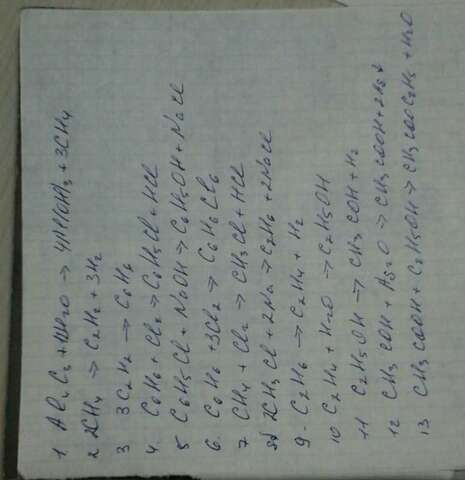 1 Al4C3 + 12H2O → 4Al(OH)3 + 3CH4
2 2CH4 → C2H2 + 3H2
3 3C2H2 → C6H6
4. C6H6 + Cl2 → C6H5Cl + HCl
5 C6H5Cl + NaOH → C6H5OH + NaCl
6. C6H6 + 3Cl2 → C6H6Cl6
7 CH4 + Cl2 → CH3Cl + HCl
8) 2CH3Cl + 2Na → C2H6 + 2NaCl
9. C2H6 → C2H4 + H2
10 C2H4 + H2O → C2H5OH
11 C2H5OH → CH3COH + H2
12 CH3COH + Ag2O → CH3COOH + 2Ag↓
13 CH3COOH + C2H5OH → CH3COOC2H5 + H2O